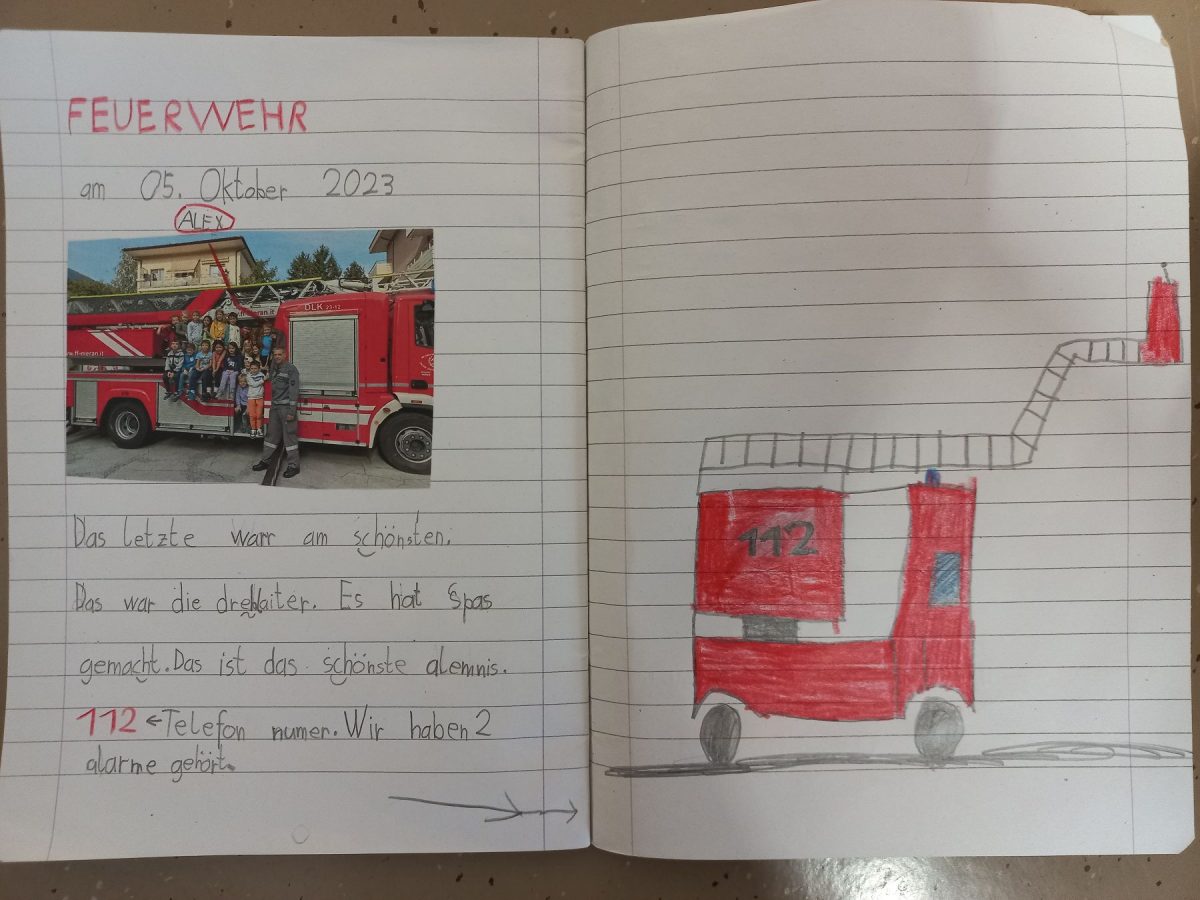 FEUERWEHR
am 05. Oktober 2023
ALEX
www.ff-meran.it
DLK 23-12
ff-meran.it
Das letzte warr am schönsten.
Das war die drehlaiter. Es hat Spas
gemacht. Das ist das schönste alemnis.
112 ← Telefon numer. Wir haben 2
alarme gehört.
112